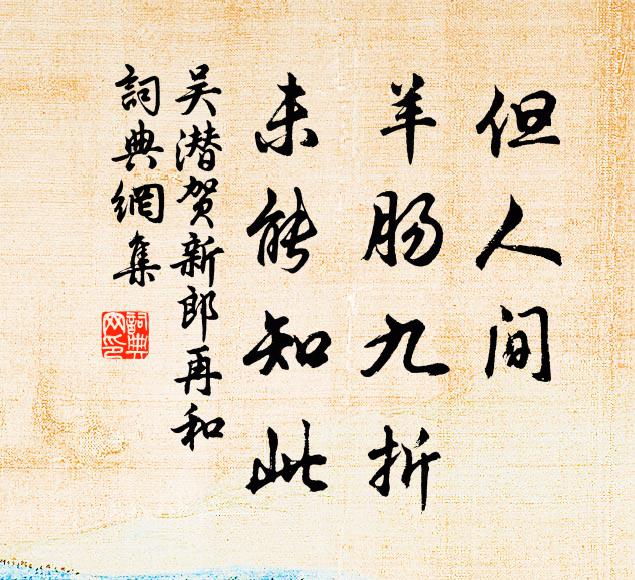 但人间
羊肠九折
未能知此
吴潜贺新郎再和
詞典網集
詞典